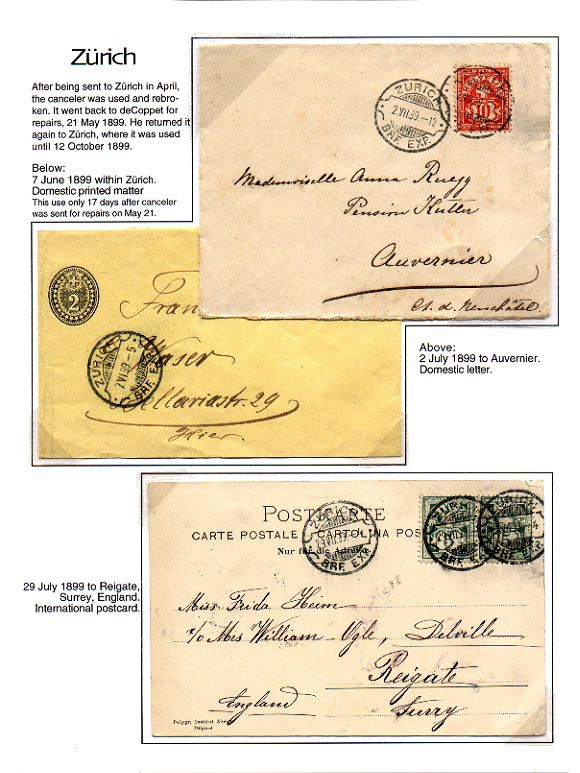 Zürich
After being sent to Zürich in April,
the canceler was used and rebro-
ken. It went back to deCoppet for
repairs, 21 May 1899. He returned it
again to Zürich, where it was used
until 12 October 1899.
Below:
7 June 1899 within Zürich.
Domestic printed matter
This use only 17 days after canceler
was sent for repairs on May 21.
ZÜRICH
2.VII.99.–12
BRF. EXP.
10
Mademoiselle Anna Ruegg
Pension Kutter
Auvernier
Ct. d. Neuchâtel.
2
Fran
Waser
Bellariastr. 29
Hier.
ZÜRICH
BRF. EXP.
Above:
2 July 1899 to Auvernier.
Domestic letter.
POSTKARTE
CARTE POSTALE CARTOLINA POS
Nur für die Adresse
ZÜRICH
BRF. EXP.
ZÜRICH
BRF. EXP.
ZÜRICH
BRF. EXP.
29 July 1899 to Reigate,
Surrey, England.
International postcard.
Miss Frida Heim
c/o Mrs William-Ugle, Delville
Reigate
England Surry
Polygr. Institut Zür
Déposé